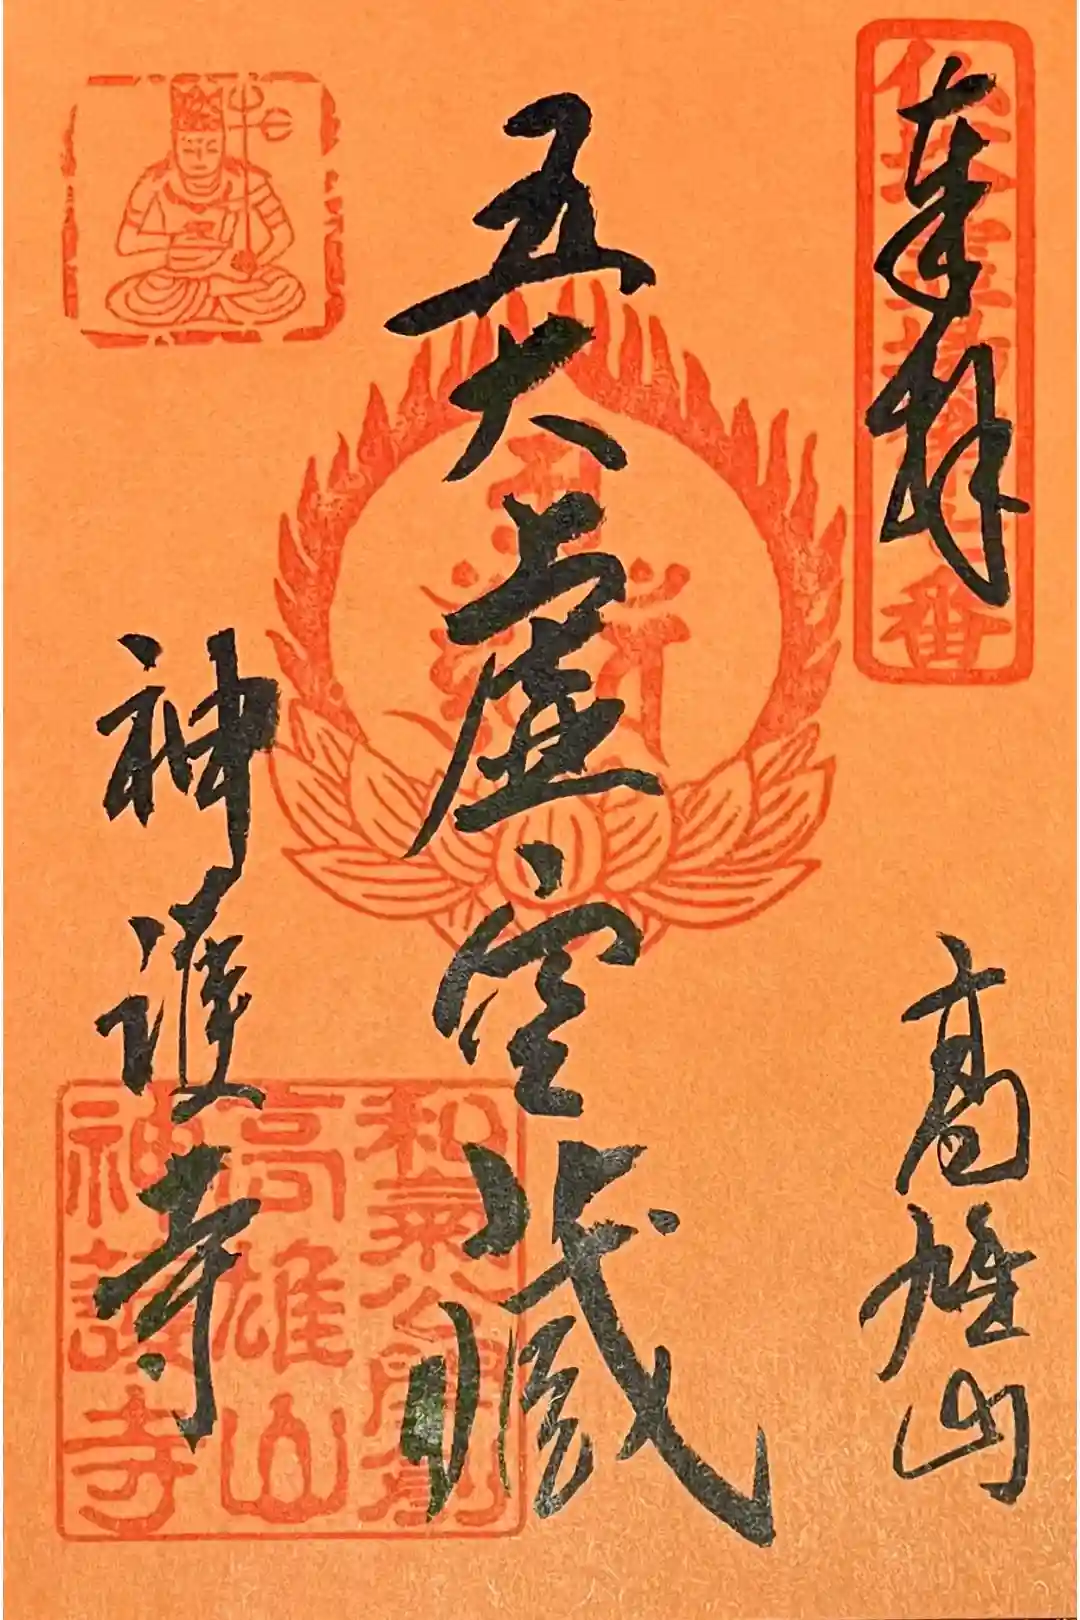 奉拝
高雄山
五大虚空蔵
神護寺
和氣公開創
高雄山
神護寺